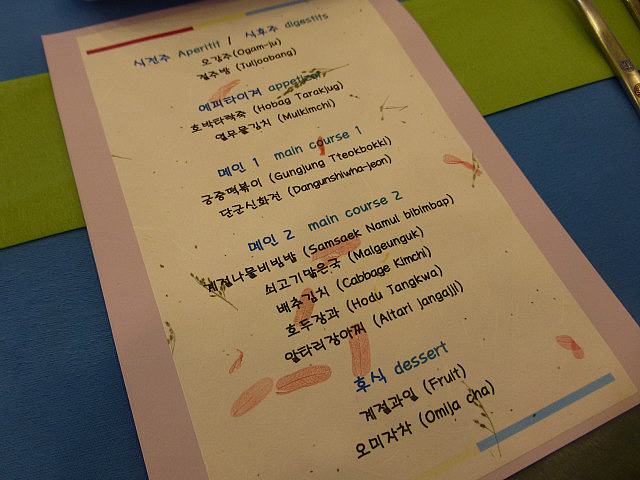 식전주 Aperitif / 식후주 digestifs
오감주(Ogam-ju)
절주방 (Tuljoobang)
에피타이져 appetizer
호박타락죽 (Hobag Tarakjug)
열무물김치 (Mulkimchi)
메인 1 main course 1
궁중떡볶이 (Gungjung Tteokbokki)
단군신화전 (Dangunshiwha-jeon)
메인 2 main course 2
계절나물비빔밥 (Samsaek Namul bibimbap)
쇠고기맑은국 (Malgeunguk)
배추김치 (Cabbage Kimchi)
호두장과 (Hodu Jangkwa)
알타리장아찌 (Altari jangajji)
후식 dessert
계절과일 (Fruit)
오미자차 (Omija cha)